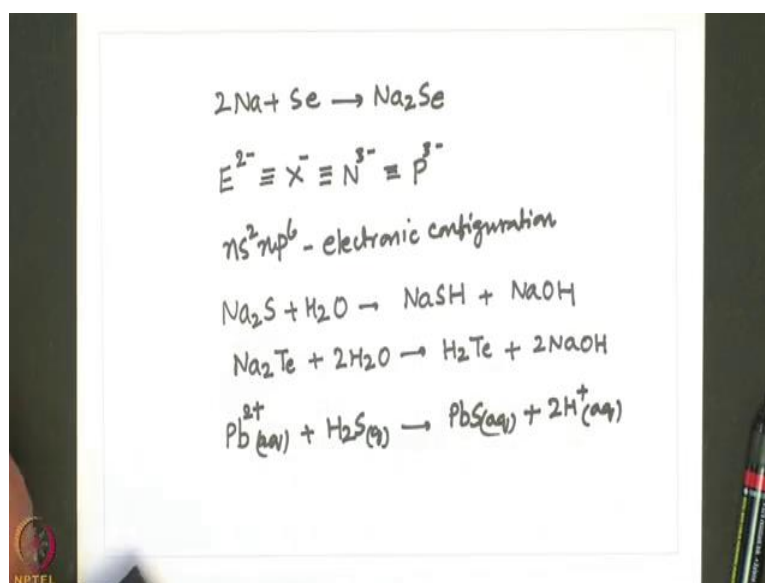 2Na + Se → Na₂Se
E²⁻ ≡ X⁻ ≡ N³⁻ ≡ P³⁻
ns²np⁶ - electronic configuration
Na₂S + H₂O → NaSH + NaOH
Na₂Te + 2H₂O → H₂Te + 2NaOH
Pb²⁺(aq) + H₂S(g) → PbS(aq) + 2H⁺(aq)
NPTEL